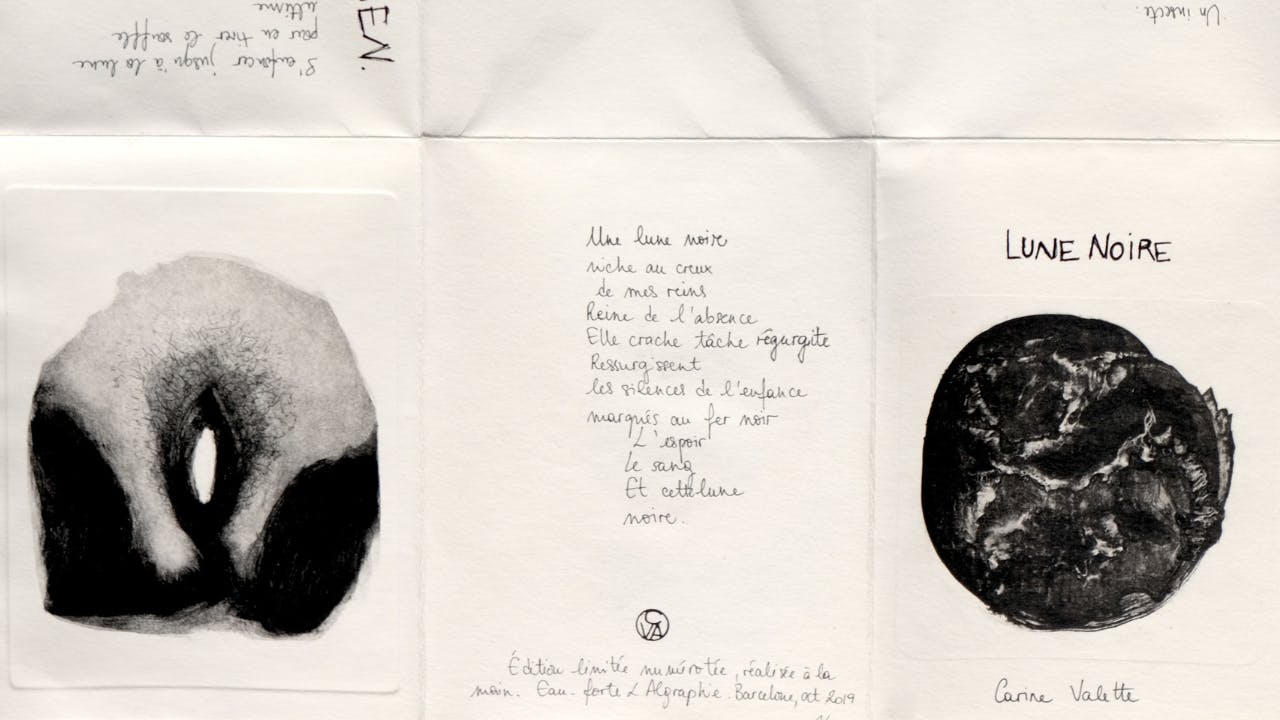 EN.
S'enfoncer jusqu'à la lune
pour en tirer le souffle
ultime
Un insecte.
Une lune noire
niche au creux
de mes reins
Reine de l'absence
Elle crache tâche régurgite
Ressurgissent
les silences de l'enfance
marqués au fer noir
L'espoir
Le sang
Et cette lune
noire.
CVA
Édition limitée numérotée, réalisée à la
main. Eau-forte & Algraphie. Barcelone, oct 2019
LUNE NOIRE
Carine Valette